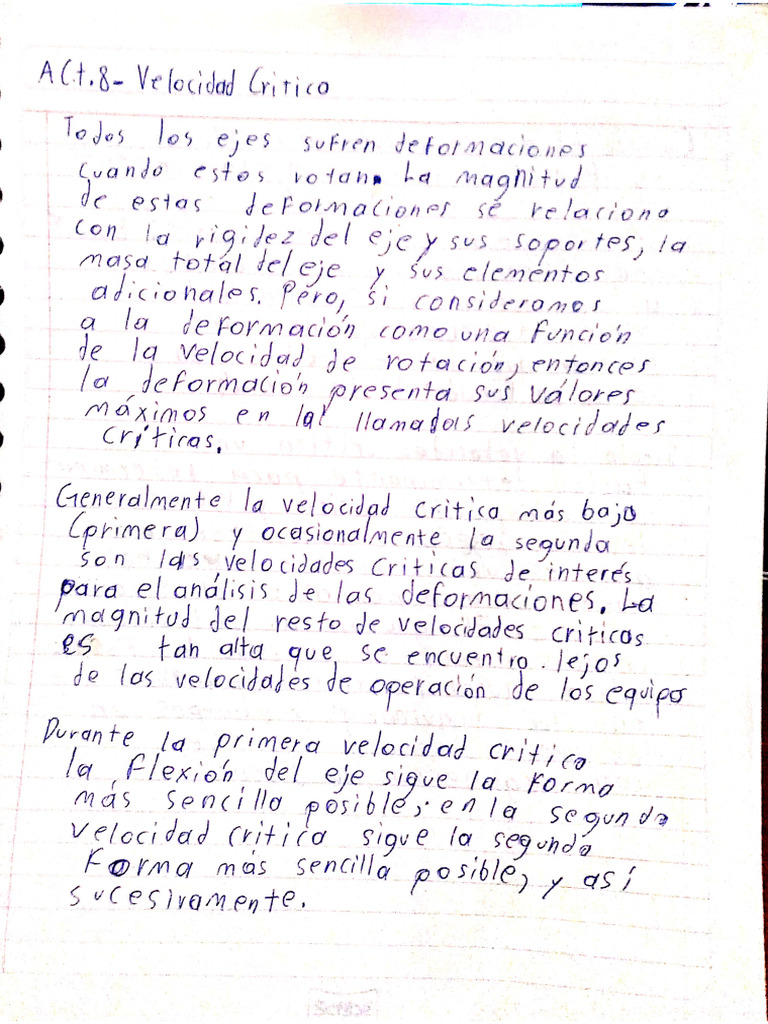 Act.8- Velocidad Critica
Todos los ejes sufren deformaciones
cuando estos rotan. La magnitud
de estas deformaciones se relaciona
con la rigidez del eje y sus soportes, la
masa total del eje y sus elementos
adicionales. Pero, si consideramos
a la deformación como una función
de la velocidad de rotación, entonces
la deformación presenta sus válores
máximos en las llamadas velocidades
críticas.
Generalmente la velocidad critica más baja
(primera) y ocasionalmente la segunda
son las velocidades criticas de interés
para el análisis de las deformaciones. La
magnitud del resto de velocidades criticas
es tan alta que se encuentra lejos
de las velocidades de operación de los equipos
Durante la primera velocidad critica
la flexión del eje sigue la forma
más sencilla posible; en la segunda
velocidad critica sigue la segunda
forma más sencilla posible, y así
sucesivamente.